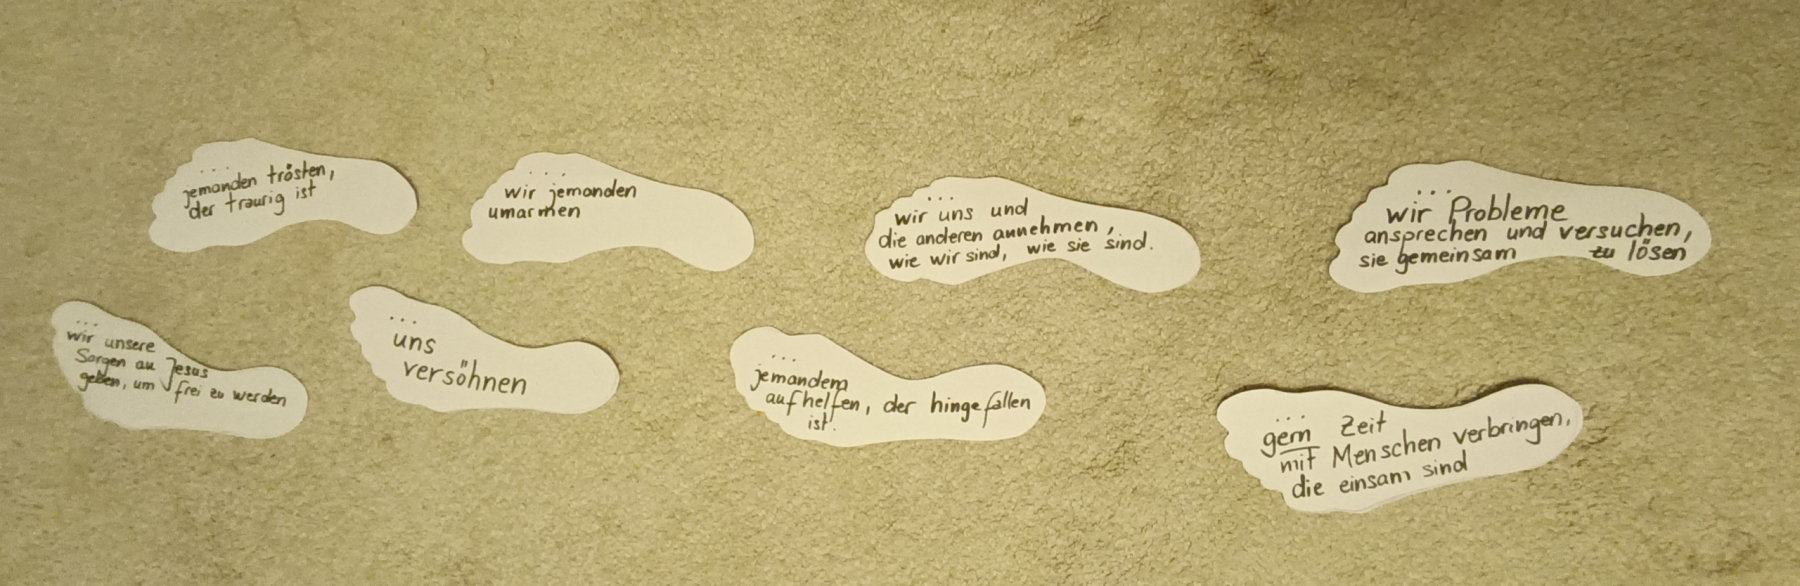 ...
jemanden trösten,
der traurig ist
...
wir jemanden
umarmen
...
wir uns und
die anderen annehmen,
wie wir sind, wie sie sind.
...
wir Probleme
ansprechen und versuchen,
sie gemeinsam zu lösen
...
wir unsere
Sorgen an Jesus
geben, um frei zu werden
...
uns
versöhnen
...
jemandem
aufhelfen, der hingefallen
ist.
...
gern Zeit
mit Menschen verbringen,
die einsam sind